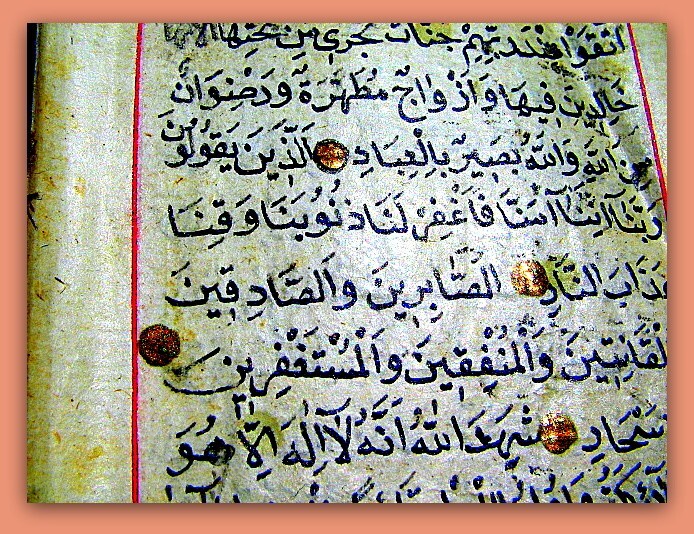 اتقوا عند ربهم جنات تجري من تحتها
خَالِدِينَ فِيهَا وَأَزْوَاجٌ مُطَهَّرَةٌ وَرِضْوَانٌ
مِنَ اللَّهِ وَاللَّهُ بَصِيرٌ بِالْعِبَادِ الَّذِينَ يَقُولُونَ
رَبَّنَا إِنَّنَا آمَنَّا فَاغْفِرْ لَنَا ذُنُوبَنَا وَقِنَا
عَذَابَ النَّارِ الصَّابِرِينَ وَالصَّادِقِينَ
وَالْقَانِتِينَ وَالْمُنْفِقِينَ وَالْمُسْتَغْفِرِينَ
بِالْأَسْحَارِ شَهِدَ اللَّهُ أَنَّهُ لَا إِلَهَ إِلَّا هُوَ